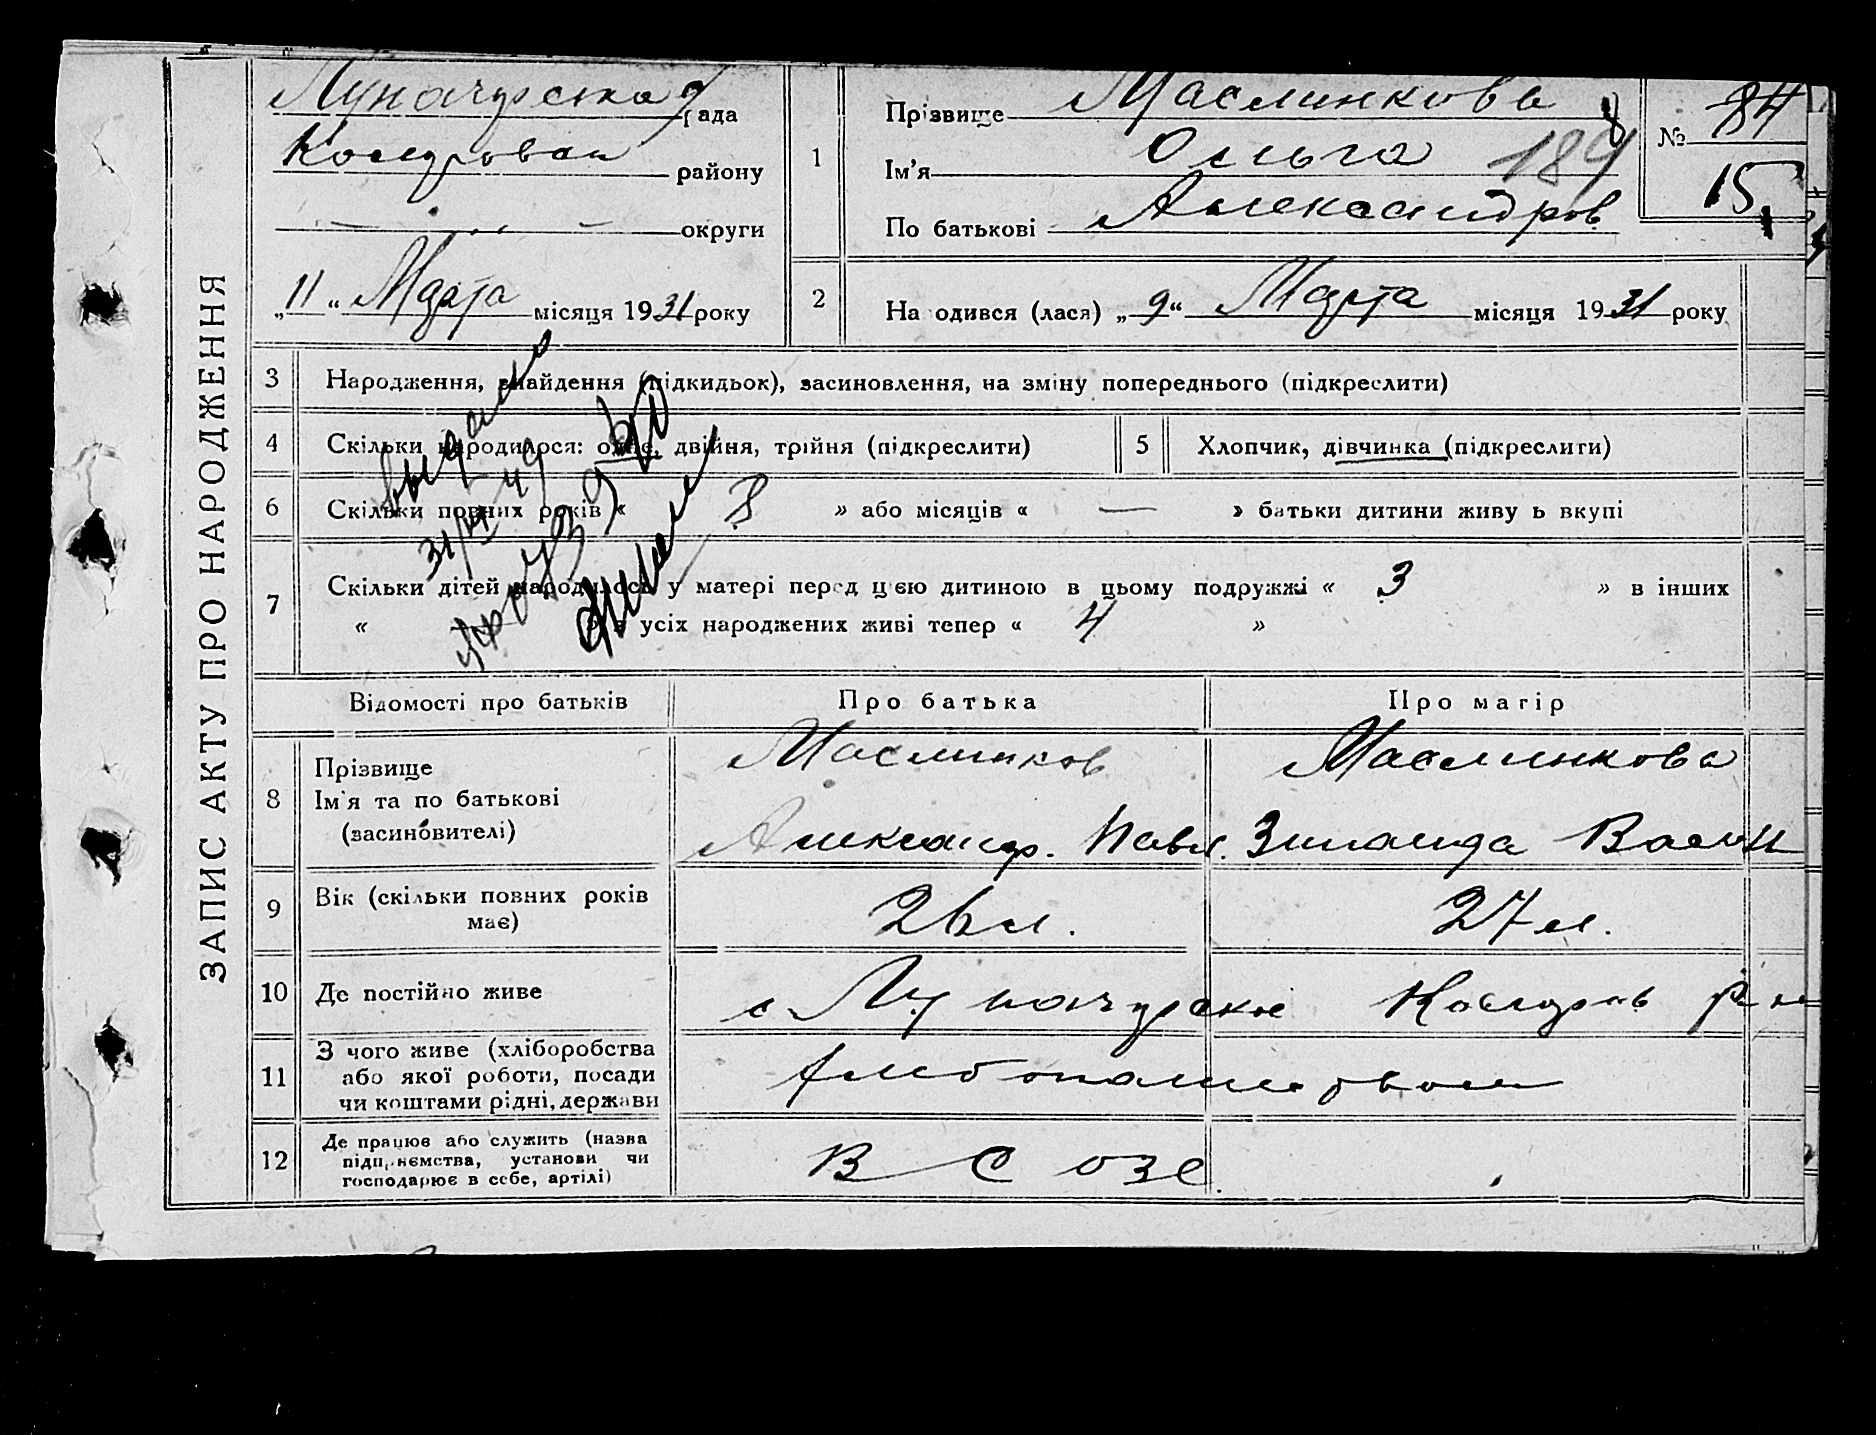 ЗАПИС АКТУ ПРО НАРОДЖЕННЯ
Луначарська рада
району
округи
„11“ Марта місяця 1931 року
1
Прізвище Маслинкова
Ім'я Ольга 189
По батькові Александров
№ 84
15
2
Народився (лася) „9“ Марта місяця 1931 року
3 Народження, знайдення (підкидьок), засиновлення, на зміну попереднього (підкреслити)
4 Скільки народилося: одне, двійня, трійня (підкреслити)
5 Хлопчик, дівчинка (підкреслити)
6 Скільки повних років « 8 » або місяців « — » батьки дитини живуть вкупі
7 Скільки дітей народилось у матері перед цією дитиною в цьому подружжі « 3 » в інших
« » з усіх народжених живі тепер « 4 »
выдано
Відомості про батьків
Про батька
Про матір
8 Прізвище
Ім'я та по батькові
(засиновителі)
Маслинков
Александр. Павл.
Маслинкова
Зинаида Васил
9 Вік (скільки повних років має)
26 л.
27 л.
10 Де постійно живе
с Луначарское р-на
11 З чого живе (хліборобства
або якої роботи, посади
чи коштами рідні, держави
Хлебопашеством
12 Де працює або служить (назва
підприємства, установи чи
господарює в себе, артілі)
В СОЗе